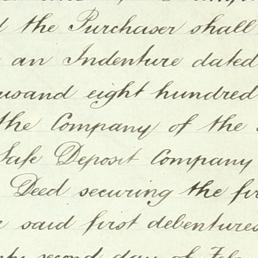 the Purchaser shall
an Indenture dated
ousand eight hundred
the Company of the
Safe Deposit Company
Deed securing the fir
said first debentures
second day of Fe